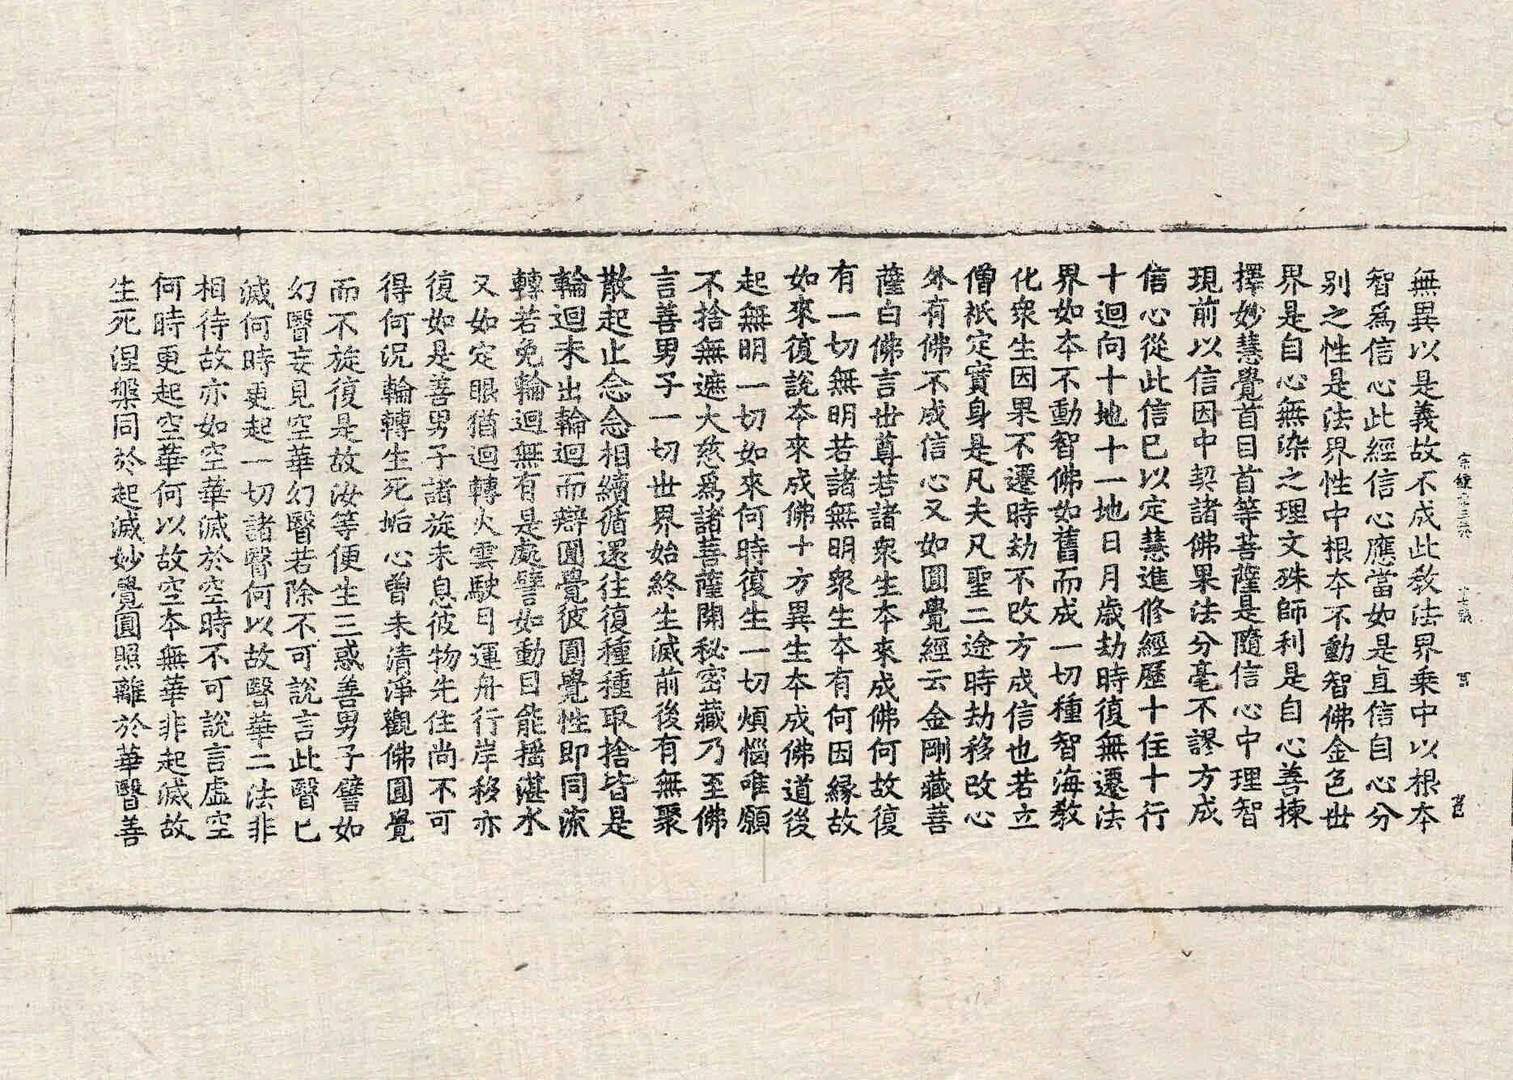 無異以是義故不成此教法界乗中以根本
智爲信心此經信心應當如是直信自心分
别之性是法界性中根本不動智佛金色世
界是自心無染之理文殊師利是自心善揀
擇妙慧覺首目首等菩薩是隨信心中理智
現前以信因中契諸佛果法分毫不謬方成
信心從此信已以定慧進修經歷十住十行
十迴向十地十一地日月歲劫時復無遷法
界如本不動智佛如舊而成一切種智海教
化衆生因果不遷時劫不改方成信也若立
僧祇定實身是凡夫凡聖二途時劫移改心
外有佛不成信心又如圓覺經云金剛藏菩
薩白佛言世尊若諸衆生本來成佛何故復
有一切無明若諸無明衆生本有何因縁故
如來復說本來成佛十方異生本成佛道後
起無明一切如來何時復生一切煩惱唯願
不捨無遮大慈爲諸菩薩開秘密藏乃至佛
言善男子一切世界始終生滅前後有無聚
散起止念念相續循還往復種種取捨皆是
輪迴未出輪迴而辯圓覺彼圓覺性即同流
轉若免輪迴無有是處譬如動目能摇湛水
又如定眼猶迴轉火雲駛月運舟行岸移亦
復如是善男子諸旋未息彼物先住尚不可
得何況輪轉生死垢心曾未清淨觀佛圓覺
而不旋復是故汝等便生三惑善男子譬如
幻翳妄見空華幻翳若除不可說言此翳已
滅何時更起一切諸翳何以故翳華二法非
相待故亦如空華滅於空時不可說言虛空
何時更起空華何以故空本無華非起滅故
生死涅槃同於起滅妙覺圓照離於華翳善